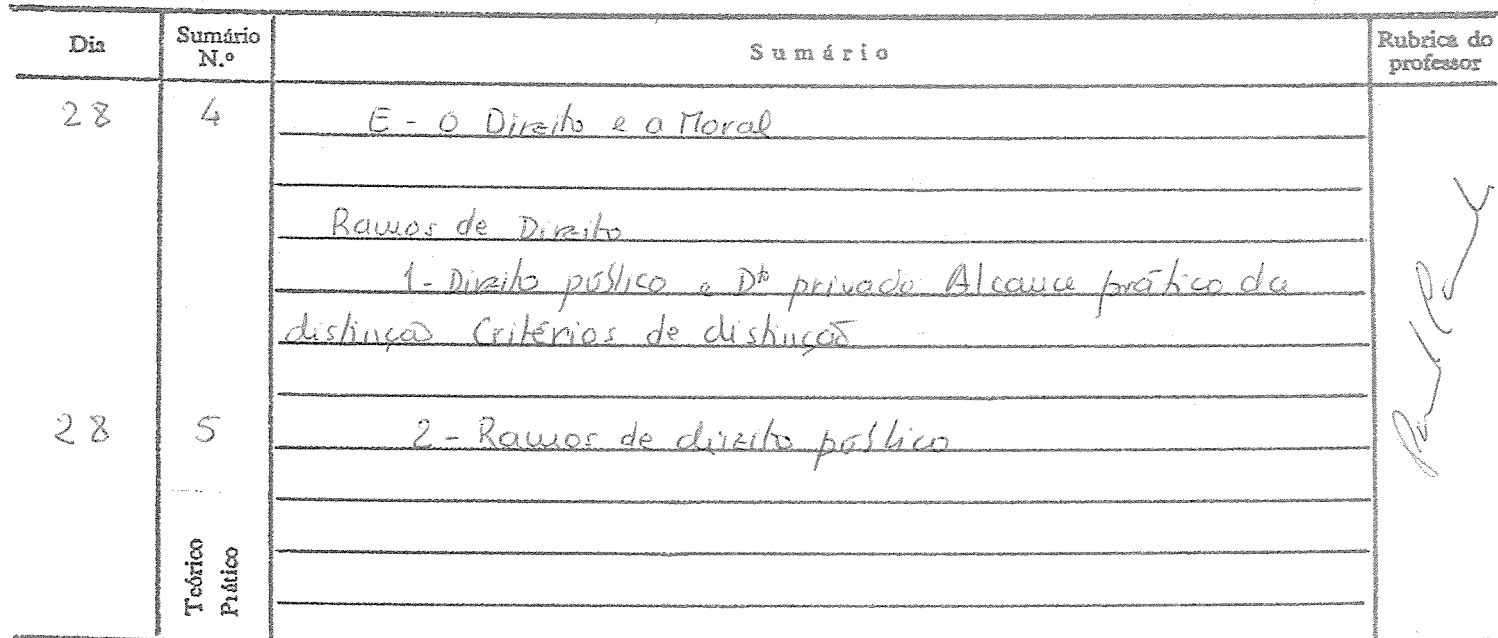 Dia Sumário N.º Sumário Rubrica do professor
28 4 E - O Direito e a Moral
Ramos de Direito
1 - Direito público e Dto privado Alcance prático da
distinção Critérios de distinção
28 5 2 - Ramos de direito público
Teórico
Prático